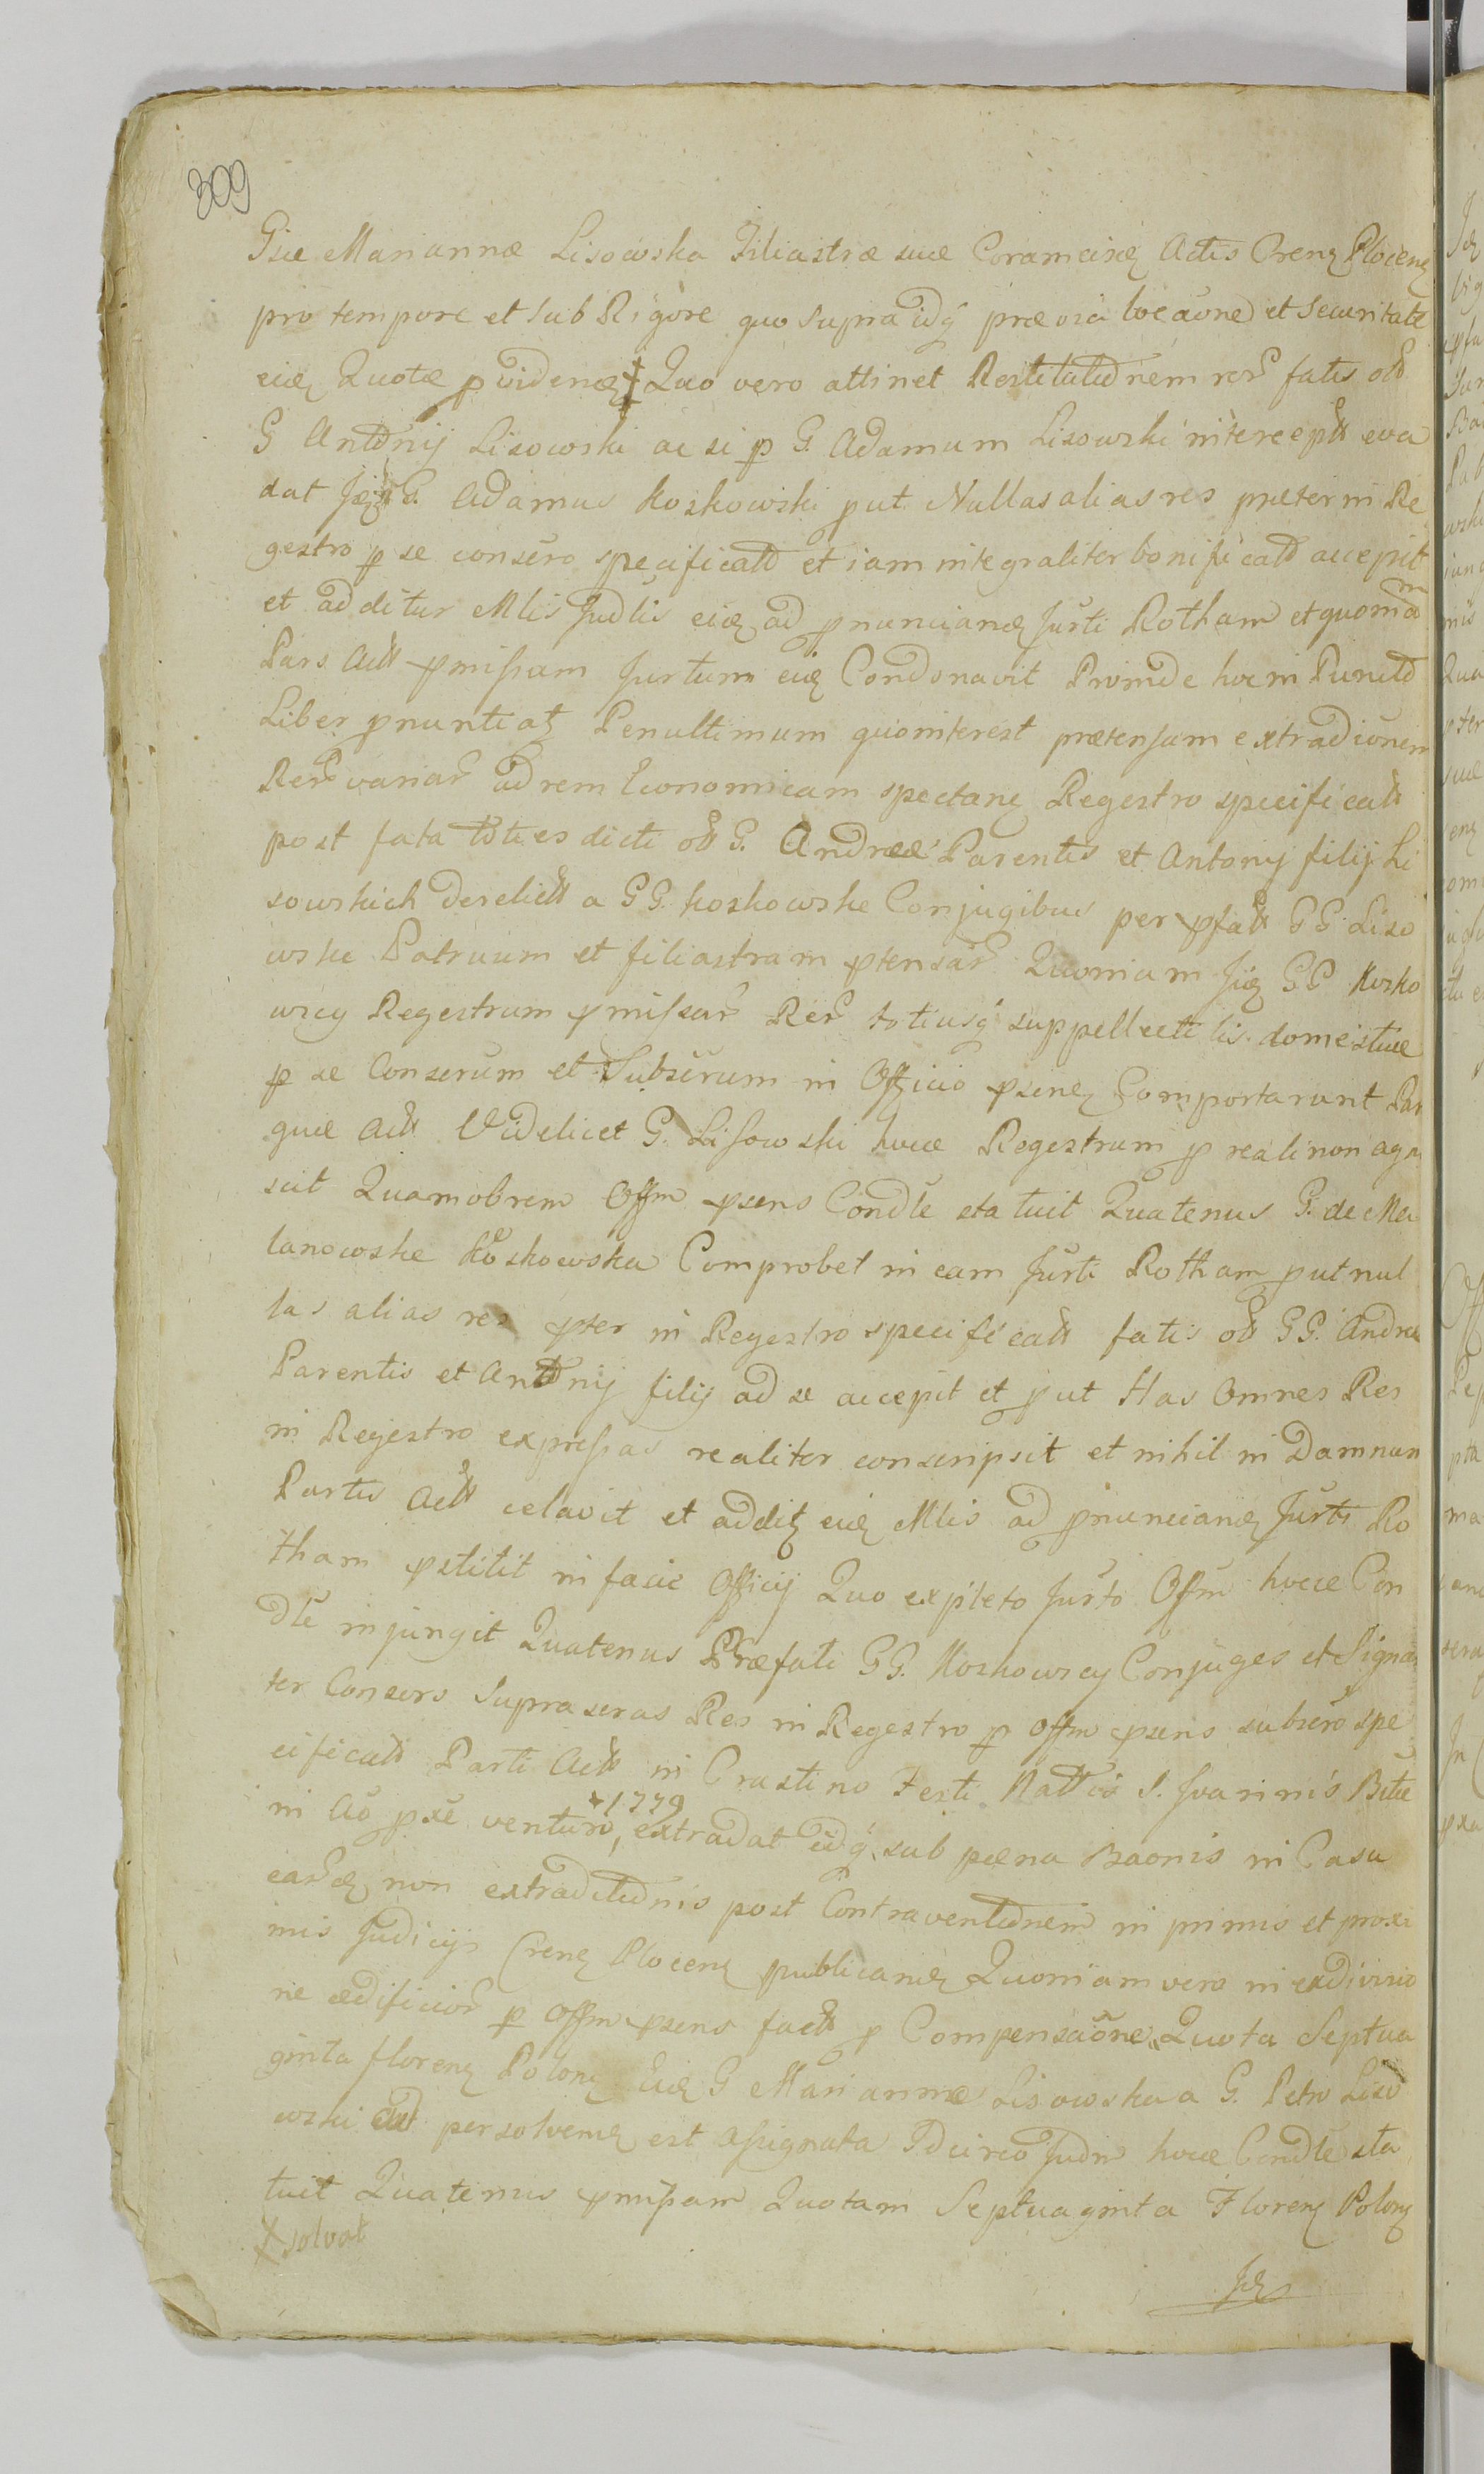 309
Gsæ Mariannæ Lisowska Filiastræ suæ Coram eisdę Actis Crenę Plocenę
pro tempore et sub Rigore quo supra idq́ prævia locaone et securitate
eiusdę Quotæ pvidenę ‡ Quo vero attinet Restitutionem rer fatis olt
G Antonij Lisowski ac si p G. Adamum Lisowski intercept eva
dat G. Adamus Koskowski put Nullas alias res præter in Re
gestro p se conscro specificato et iam integraliter bonificato accepit
et additur Mlis Judlis eidę ad pnuncianę Jurti Rotham et quoniam
Pars Act pmissam Jurtum eidę Condonavit Proinde hoc in Puncto
Liber pnuntiatę Penultimum quo interest prætensam extradionem
Rer variar ad rem Economicam spectanę Regestro specificatt
post fata toties dicti olt G. Andreæ Parentis et Antonij filij Li
sowskich derelictt a GG. Koskowskie Conjugibus per pfatt GG Liso
wskie Patruum et filiastram ptensar Quoniam GG Kosko
wscy Regestrum pmissar Rer totiusq́ suppellectilis domesticæ
p se Conscrum et Subscrum in Officio psenę Comportarunt Par
que Actt Videlicet G. Lisowski hocce Regestrum p reali non agno
scit Quamobrem Offm psens Condle statuit Quatenus G. de Mi
lanowskie Koskowska Comprobet in eam Jurti Rotham put nul
las alias res pter in Regestro specificatt fatis olt GG. Andreæ
Parentis et Antonij filij ad se accepit et put Has Omnes Res
in Regestro expressas realiter conscripsit et nihil in Damnum
Partis Actt celavit et additę eidę Mlis ad pnuncianę Jurti Ro
tham pstitit in facie Officij Quo expleto Jurto Offm hocce Con
dle injungit Quatenus Præfati GG. Koskowscy Conjuges et Signan
ter Consors Suprascras Res in Regestro p Offm psens subscro spe
cificatt Parti Actt in Crastino Festi Nattis S. Joannis Btæ
in Ao pxe venturo, +1779 extradat idq́ sub pæna Baonis in Casu
eardę non extraditionis post Contraventionem in primis et proxi
mis Judicijs Crenę Plocenę publicandę Quoniam vero in exdivisio
ne ædificior p Offm psens factt p Compensaone Quota Septua
ginta florenę Polonę Eidę G Mariannæ Lisowska a G. Petro Liso
wski persolvendę est assignata Idcirco Judm hocce Condle sta
tuit Quatenus pmissam Quotam Septuaginta Florenę Polonę
‡ solvat